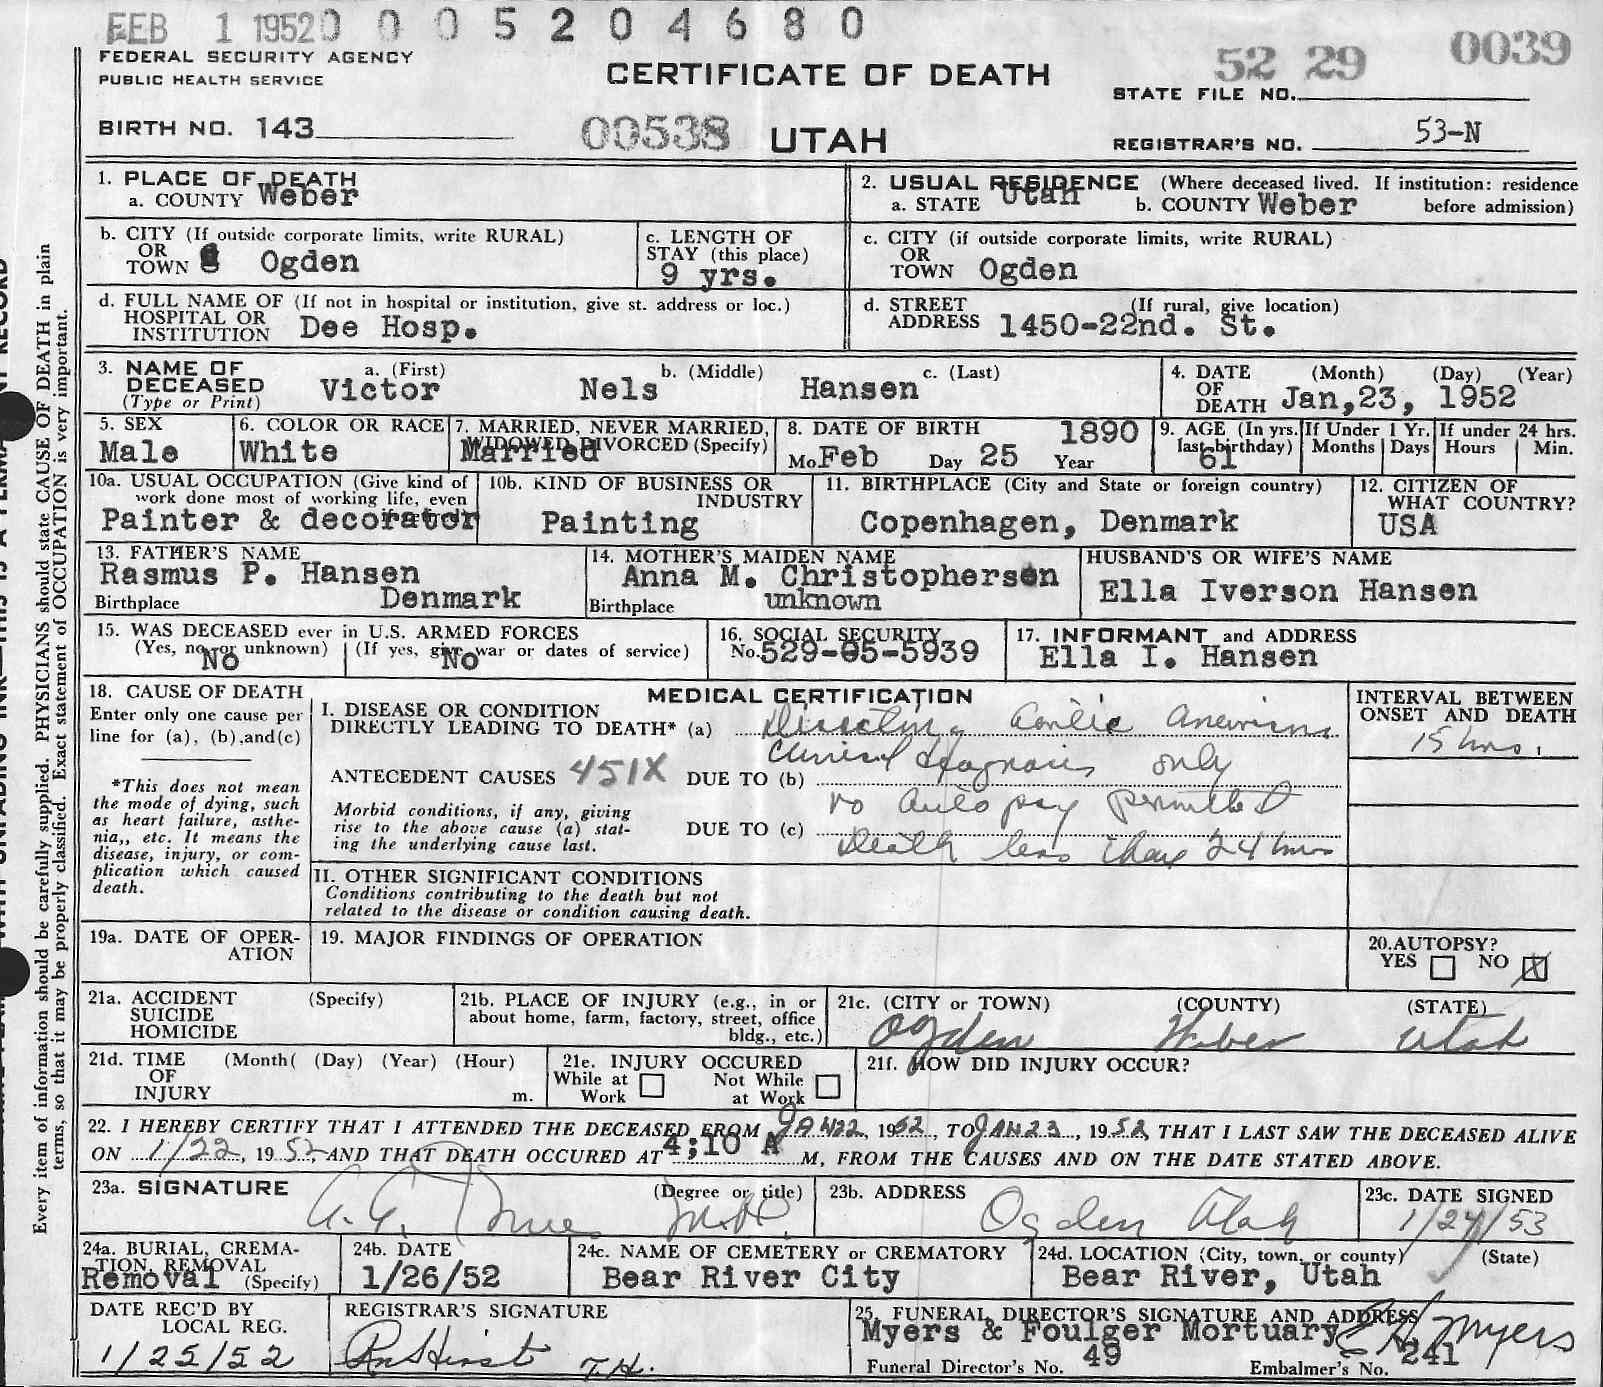 FEB 1 1952 0 0 0 5 2 0 4 6 8 0
FEDERAL SECURITY AGENCY
PUBLIC HEALTH SERVICE
CERTIFICATE OF DEATH
52 29 0039
STATE FILE NO.
BIRTH NO. 143
00538 UTAH
REGISTRAR'S NO. 53-N
1. PLACE OF DEATH
a. COUNTY Weber
2. USUAL RESIDENCE (Where deceased lived. If institution: residence
a. STATE Utah b. COUNTY Weber before admission)
b. CITY (If outside corporate limits, write RURAL)
OR
TOWN Ogden
c. LENGTH OF
STAY (this place)
9 yrs.
c. CITY (if outside corporate limits, write RURAL)
OR
TOWN Ogden
d. FULL NAME OF (If not in hospital or institution, give st. address or loc.)
HOSPITAL OR
INSTITUTION Dee Hosp.
d. STREET (If rural, give location)
ADDRESS 1450-22nd. St.
3. NAME OF
DECEASED
(Type or Print)
a. (First) b. (Middle) c. (Last)
Victor Nels Hansen
4. DATE (Month) (Day) (Year)
OF
DEATH Jan,23, 1952
5. SEX
Male
6. COLOR OR RACE
White
7. MARRIED, NEVER MARRIED,
WIDOWED, DIVORCED (Specify)
Married
8. DATE OF BIRTH 1890
Mo Feb Day 25 Year
9. AGE (In yrs.
last birthday)
61
If Under 1 Yr.
Months Days
If under 24 hrs.
Hours Min.
10a. USUAL OCCUPATION (Give kind of
work done most of working life, even
if retired)
Painter & decorator
10b. KIND OF BUSINESS OR
INDUSTRY
Painting
11. BIRTHPLACE (City and State or foreign country)
Copenhagen, Denmark
12. CITIZEN OF
WHAT COUNTRY?
USA
13. FATHER'S NAME
Rasmus P. Hansen
Birthplace Denmark
14. MOTHER'S MAIDEN NAME
Anna M. Christophersen
Birthplace unknown
HUSBAND'S OR WIFE'S NAME
Ella Iverson Hansen
15. WAS DECEASED ever in U.S. ARMED FORCES
(Yes, no, or unknown) (If yes, give war or dates of service)
No No
16. SOCIAL SECURITY
No. 529-05-5939
17. INFORMANT and ADDRESS
Ella I. Hansen
18. CAUSE OF DEATH
Enter only one cause per
line for (a), (b),and(c)
*This does not mean
the mode of dying, such
as heart failure, asthe-
nia,, etc. It means the
disease, injury, or com-
plication which caused
death.
MEDICAL CERTIFICATION
I. DISEASE OR CONDITION
DIRECTLY LEADING TO DEATH* (a) Dissecting aortic aneurism
Clinical diagnosis only
ANTECEDENT CAUSES 451X DUE TO (b)
no autopsy permitted
Morbid conditions, if any, giving
rise to the above cause (a) stat-
ing the underlying cause last.
DUE TO (c)
Death less than 24 hrs
INTERVAL BETWEEN
ONSET AND DEATH
15 hrs.
II. OTHER SIGNIFICANT CONDITIONS
Conditions contributing to the death but not
related to the disease or condition causing death.
19a. DATE OF OPER-
ATION
19. MAJOR FINDINGS OF OPERATION
20.AUTOPSY?
YES NO X
21a. ACCIDENT (Specify)
SUICIDE
HOMICIDE
21b. PLACE OF INJURY (e.g., in or
about home, farm, factory, street, office
bldg., etc.)
21c. (CITY or TOWN) (COUNTY) (STATE)
Ogden Weber Utah
21d. TIME (Month( (Day) (Year) (Hour)
OF
INJURY m.
21e. INJURY OCCURED
While at Not While
Work at Work
21f. HOW DID INJURY OCCUR?
22. I HEREBY CERTIFY THAT I ATTENDED THE DECEASED FROM JAN 22, 1952, TO JAN 23, 1952, THAT I LAST SAW THE DECEASED ALIVE
ON 1/22, 1952, AND THAT DEATH OCCURED AT 4;10 A M, FROM THE CAUSES AND ON THE DATE STATED ABOVE.
23a. SIGNATURE (Degree or title)
M.D.
23b. ADDRESS
Ogden Utah
23c. DATE SIGNED
1/24/53
24a. BURIAL, CREMA-
TION, REMOVAL
Removal (Specify)
24b. DATE
1/26/52
24c. NAME OF CEMETERY or CREMATORY
Bear River City
24d. LOCATION (City, town, or county) (State)
Bear River, Utah
DATE REC'D BY
LOCAL REG.
1/25/52
REGISTRAR'S SIGNATURE
T.H.
25. FUNERAL DIRECTOR'S SIGNATURE AND ADDRESS
Myers & Foulger Mortuary E H Myers
Funeral Director's No. 49 Embalmer's No. 241
Every item of information should be carefully supplied. PHYSICIANS should state CAUSE OF DEATH in plain
terms, so that it may be properly classified. Exact statement of OCCUPATION is very important.